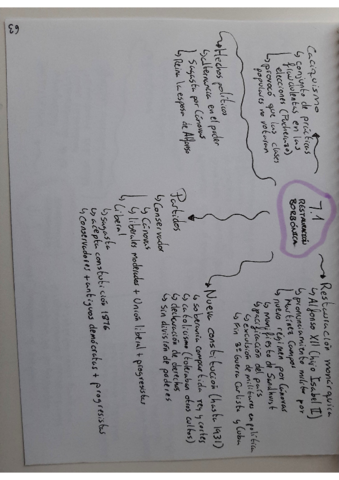 63
7.1
RESTAURACIÓN
BORBÓNICA
Restauración monárquica
↳ Alfonso XII (hijo Isabel II)
↳ pronunciamiento militar por
Martínez Campos
↳ nuevo régimen por Cánovas
↳ manifiesto de Sandhurst
↳ pacificación del país
↳ exclusión de militares en política
↳ fin 3ª Guerra Carlista y Cuba
Nueva constitución (hasta 1931)
↳ soberanía compartida rey y cortes
↳ catolicismo (toleraban otros cultos)
↳ declaración de derechos
↳ sin división de poderes
Partidos
↳ Conservador
↳ Cánovas
↳ liberales moderados + Unión liberal + progresistas
↳ Liberal
↳ Sagasta
↳ acepta constitución 1876
↳ conservadores + antiguos demócratas + progresistas
Hechos políticos
↳ alternancia en el poder
↳ Sagasta por Cánovas
↳ Reina la esposa de Alfonso
Caciquismo
↳ conjunto de prácticas
fraudulentas en las
elecciones (Pucherazo)
↳ provocó que las clases
populares no votaran